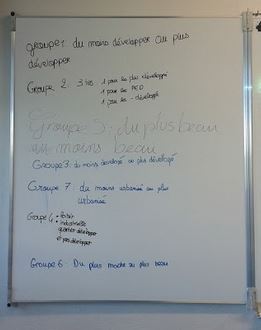 groupe 1: du moins développer au plus
développer
Groupe 2: 3 tas 1 pour les plus développé
1 pour les PED
1 pour les - développé
Groupe 5: du plus beau
au moins beau
Groupe 3: du moins dévelopé au plus dévelopé
Groupe 7: du moins urbanisé au plus
urbanisé
Groupe 4
industrielle
quartier développer
et pas développer
Groupe 6: Du plus moche au plus beau